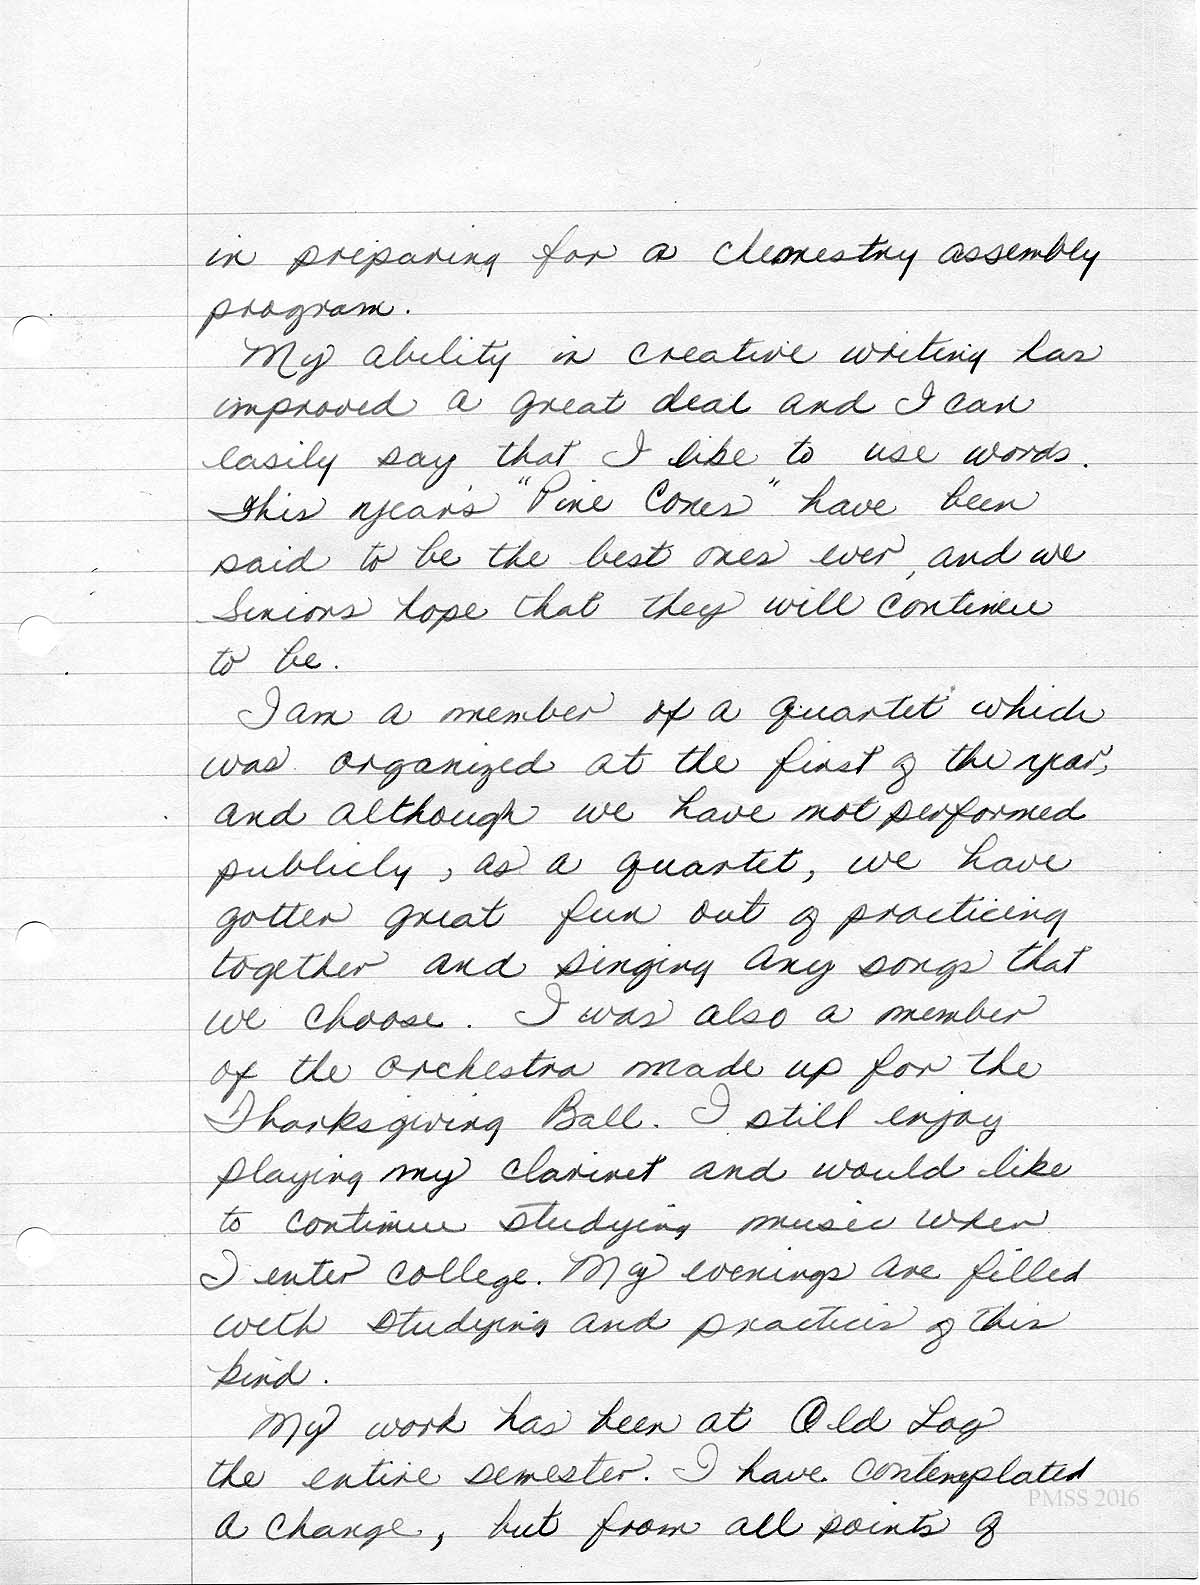 in preparing for a chemestry assembly
program.
My ability in creative writing has
improved a great deal and I can
easily say that I like to use words.
This year's "Pine Cones" have been
said to be the best ones ever, and we
Seniors hope that they will continue
to be.
I am a member of a quartet which
was organized at the first of the year,
and although we have not performed
publicly, as a quartet, we have
gotten great fun out of practicing
together and singing any songs that
we choose. I was also a member
of the orchestra made up for the
Thanksgiving Ball. I still enjoy
playing my clarinet and would like
to continue studying music when
I enter college. My evenings are filled
with studying and practices of this
kind.
My work has been at Old Log
the entire semester. I have contemplated
PMSS 2016
a change, but from all points of